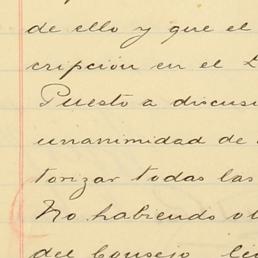 de ello y que el
cripción en el
Puesto a discusi
unanimidad de
torizar todas las
No habiendo o
del Consejo